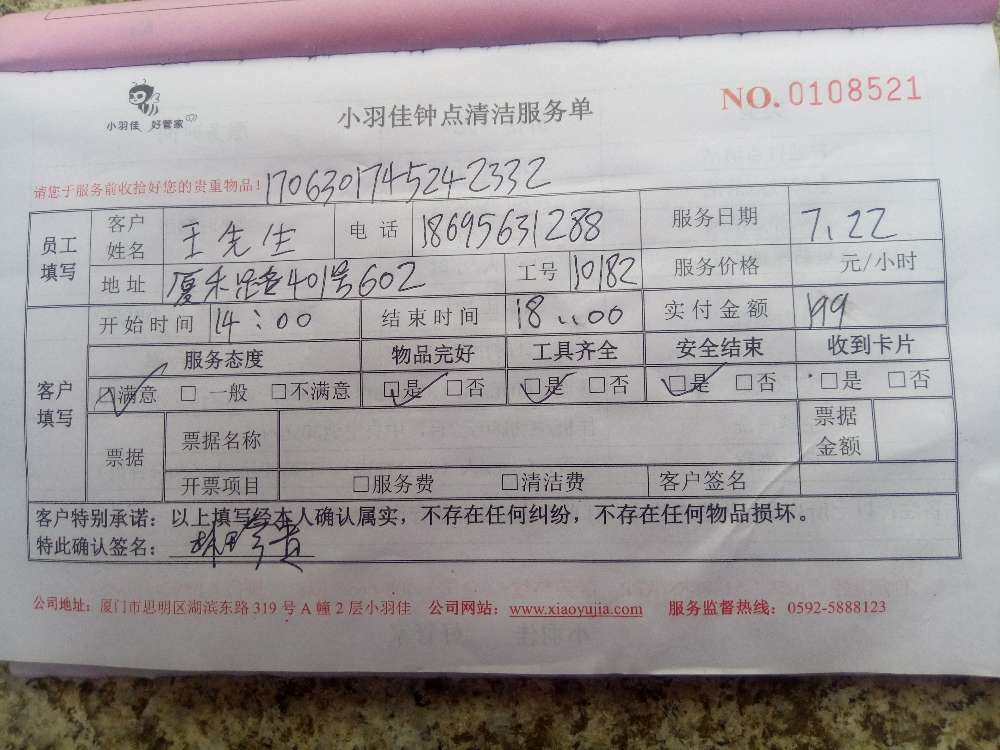 小羽佳 好管家
小羽佳钟点清洁服务单
NO. 0108521
请您于服务前收拾好您的贵重物品！
1706301745242332
员工填写 客户姓名 王先生 电话 18695631288 服务日期 7.22
地址 厦禾路401号602 工号 10182 服务价格 元/小时
客户填写 开始时间 14:00 结束时间 18:00 实付金额 199
服务态度 物品完好 工具齐全 安全结束 收到卡片
☑满意 □ 一般 □不满意 ☑是 □否 ☑是 □否 ☑是 □否 □是 □否
票据 票据名称 票据金额
开票项目 □服务费 □清洁费 客户签名
客户特别承诺：以上填写经本人确认属实，不存在任何纠纷，不存在任何物品损坏。
特此确认签名：
公司地址：厦门市思明区湖滨东路 319 号 A 幢 2 层小羽佳 公司网站：www.xiaoyujia.com 服务监督热线：0592-5888123